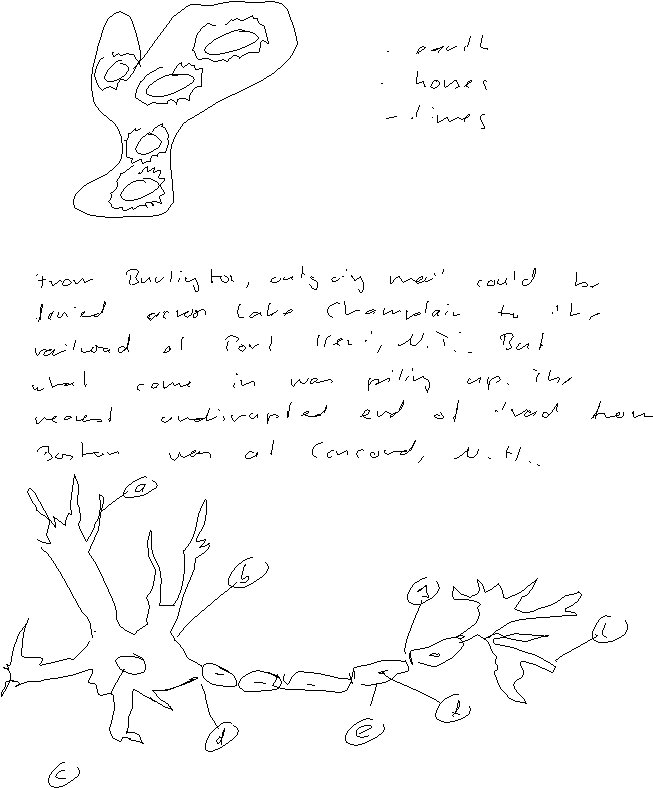 - earth
- houses
- times
from Burlington, outgoing mail could be
ferried across Lake Champlain to the
railroad at Port Henri, N.Y.. But
what came in was piling up. The
nearest undisrupted end of road from
Boston was at Concord, N.H..
a
b
c
d
e
f